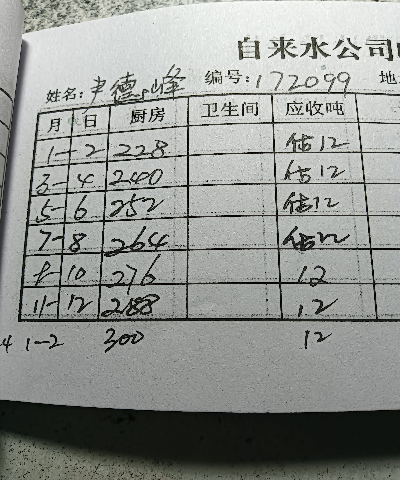 自来水公司
姓名: 尹德峰 编号: 172099 地
月 日 厨房 卫生间 应收吨
1-2 228 估12
3-4 240 估12
5-6 252 估12
7-8 264 估12
10 276 12
11-12 288 12
4 1-2 300 12